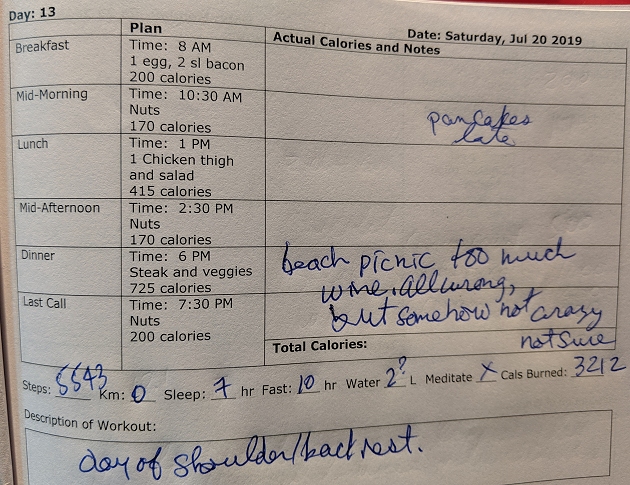 Day: 13
Date: Saturday, Jul 20 2019
Plan
Actual Calories and Notes
Breakfast
Time: 8 AM
1 egg, 2 sl bacon
200 calories
Mid-Morning
Time: 10:30 AM
Nuts
170 calories
pancakes
late
Lunch
Time: 1 PM
1 Chicken thigh
and salad
415 calories
Mid-Afternoon
Time: 2:30 PM
Nuts
170 calories
Dinner
Time: 6 PM
Steak and veggies
725 calories
beach picnic too much
wine, all wrong,
but somehow not crazy
Last Call
Time: 7:30 PM
Nuts
200 calories
Total Calories: not sure
Steps: 5543 Km: 0 Sleep: 7 hr Fast: 10 hr Water 2? L Meditate X Cals Burned: 3212
Description of Workout:
day of shoulder/back rest.